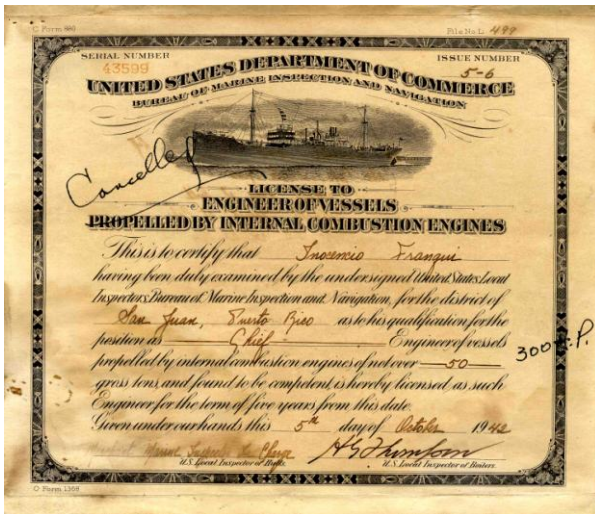 C Form 880
File No. L. 499
SERIAL NUMBER
43599
ISSUE NUMBER
5-6
UNITED STATES DEPARTMENT OF COMMERCE
BUREAU OF MARINE INSPECTION AND NAVIGATION
Cancelled
LICENSE TO
ENGINEER OF VESSELS
PROPELLED BY INTERNAL COMBUSTION ENGINES
This is to certify that Inocencio Franqui
having been duly examined by the undersigned United States Local
Inspectors, Bureau of Marine Inspection and Navigation, for the district of
San Juan, Puerto Rico as to his qualification for the
position as Chief Engineer of vessels
300 H.P.
propelled by internal combustion engines of not over 50
gross tons, and found to be competent, is hereby licensed as such
Engineer for the term of five years from this date.
Given under our hands this 5th day of October 1942
in Charge
H G Thompson
U.S. Local Inspector of Hulls.
U.S. Local Inspector of Boilers.
C Form 1366